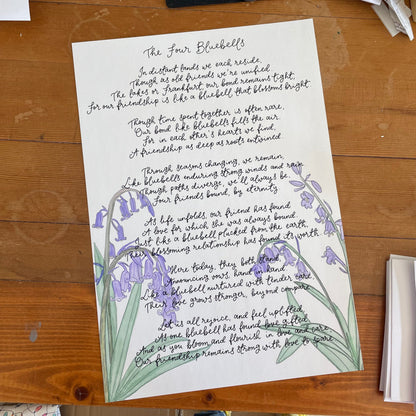 The Four Bluebells
In distant lands we each reside,
Though as old friends we're unified
The Lakes or Frankfurt our bond remains tight,
For our friendship is like a bluebell that blossoms bright
Though time spent together is often rare,
Our bond like bluebells fills the air.
For in each other's hearts we find,
A friendship as deep as roots entwined
Through seasons changing, we remain,
Like bluebells enduring strong winds and rain
Though paths diverge, we'll always be,
Four friends bound, by eternity
As life unfolds, our friend has found
A love for which she was always bound.
Just like a bluebell plucked from the earth,
Their blossoming relationship has found its worth
Here today, they both stand
Announcing vows, hand in hand
Like a bluebell nurtured with tender care
Their love grows stronger, beyond compare
Let us all rejoice, and feel uplifted,
As one bluebell has found love gifted
And as you bloom and flourish in love and care,
Our friendship remains strong with love to spare